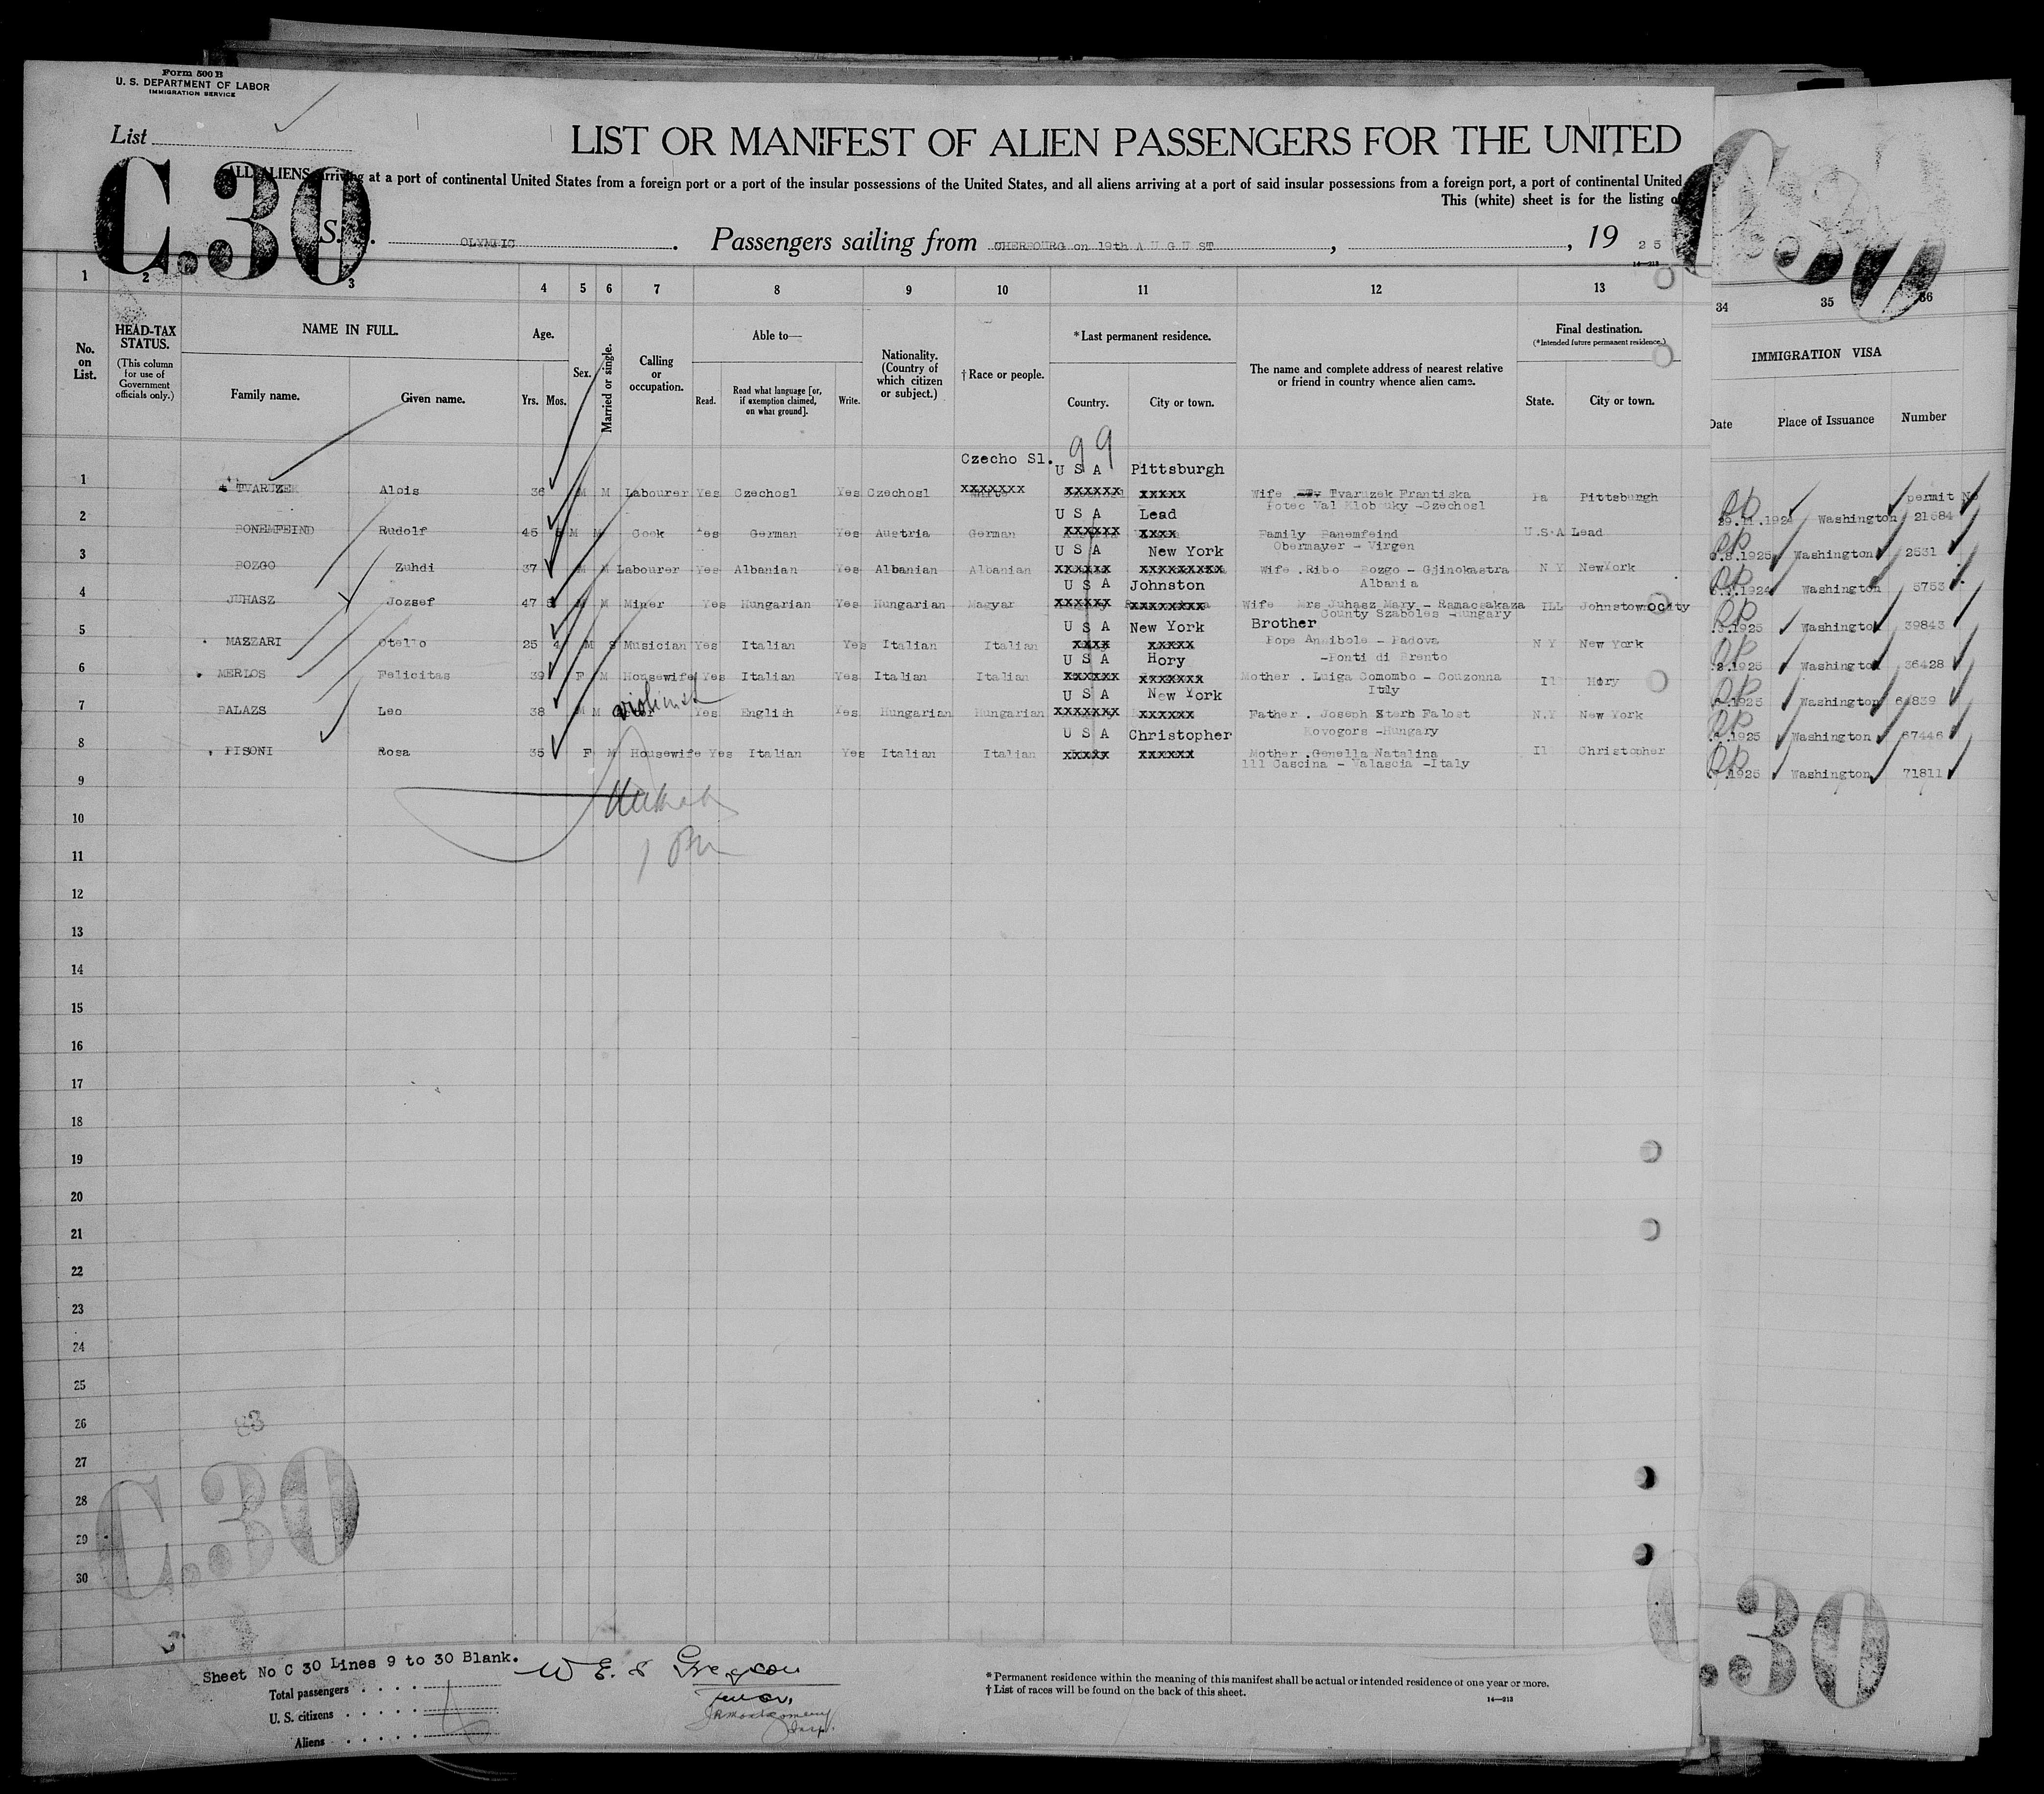 Form 500 B
U. S. DEPARTMENT OF LABOR
IMMIGRATION SERVICE
List
LIST OR MANIFEST OF ALIEN PASSENGERS FOR THE UNITED
ALL ALIENS arriving at a port of continental United States from a foreign port or a port of the insular possessions of the United States, and all aliens arriving at a port of said insular possessions from a foreign port, a port of continental United
This (white) sheet is for the listing o
C.30
S. OLYMPIC. Passengers sailing from CHERBOURG on 19th A U G U ST, , 19 2 5
14—213
1 2 3 4 5 6 7 8 9 10 11 12 13 34 35 36
No. on List.
HEAD-TAX STATUS.
(This column for use of Government officials only.)
NAME IN FULL.
Family name. Given name.
Age.
Yrs. Mos.
Sex.
Married or single.
Calling or occupation.
Able to—
Read. Read what language [or, if exemption claimed, on what ground]. Write.
Nationality. (Country of which citizen or subject.)
† Race or people.
* Last permanent residence.
Country. City or town.
The name and complete address of nearest relative or friend in country whence alien came.
Final destination.
(*Intended future permanent residence.)
State. City or town.
IMMIGRATION VISA
Date Place of Issuance Number
99
Czecho Sl. U S A Pittsburgh
1 TVARUZEK Alois 36 M M Labourer Yes Czechosl Yes Czechosl xxxxxxx xxxxxx xxxxx Wife Tvaruzek Frantiska Pa Pittsburgh permit No
Potec Val Klobouky -Czechosl
29.11.1924 Washington 21684
U S A Lead
2 BONEMFEIND Rudolf 45 M M Cook Yes German Yes Austria German xxxxxx xxxx Family Panemfeind U.S.A Lead
Obermayer - Virgen
.8.1925 Washington 2531
U S A New York
3 BOZGO Zuhdi 37 M M Labourer Yes Albanian Yes Albanian Albanian xxxxxx xxxxxxxxx Wife .Ribo Bozgo - Gjinokastra N Y NewYork
Albania
1924 Washington 5753
U S A Johnston
4 JUHASZ Jozsef 47 M M Miner Yes Hungarian Yes Hungarian Magyar xxxxxx xxxxxxxx Wife Mrs Juhasz Mary - Ramacsakaza ILL Johnstonocity
County Szaboles -Hungary
.1925 Washington 39843
U S A New York Brother
5 MAZZARI Otello 25 4 M S Musician Yes Italian Yes Italian Italian xxxx xxxxx Pope Annibole - Padova N Y New York
-Ponti di Brento
.1925 Washington 36428
U S A Hory
6 MERLOS Felicitas 39 F M Housewife Yes Italian Yes Italian Italian xxxxxx xxxxxxx Mother . Luiga Comombo - Couzonna Il Hory
Itly
.1925 Washington 64839
U S A New York
violinist
7 BALAZS Leo 38 M M Yes English Yes Hungarian Hungarian xxxxxxx xxxxxx Father . Joseph Sterb Falost N.Y New York
Kovogors -Hungary
.1925 Washington 67446
U S A Christopher
8 PISONI Rosa 35 F M Housewife Yes Italian Yes Italian Italian xxxxx xxxxxx Mother .Genella Natalina Il Christopher
111 Cascina - Valascia -Italy
.1925 Washington 71811
9
10
11
12
13
14
15
16
17
18
19
20
21
22
23
24
25
26
27
28
29
30
83
C.30
Sheet No C 30 Lines 9 to 30 Blank.
Total passengers
U. S. citizens
Aliens
* Permanent residence within the meaning of this manifest shall be actual or intended residence of one year or more.
† List of races will be found on the back of this sheet.
14—213
.30